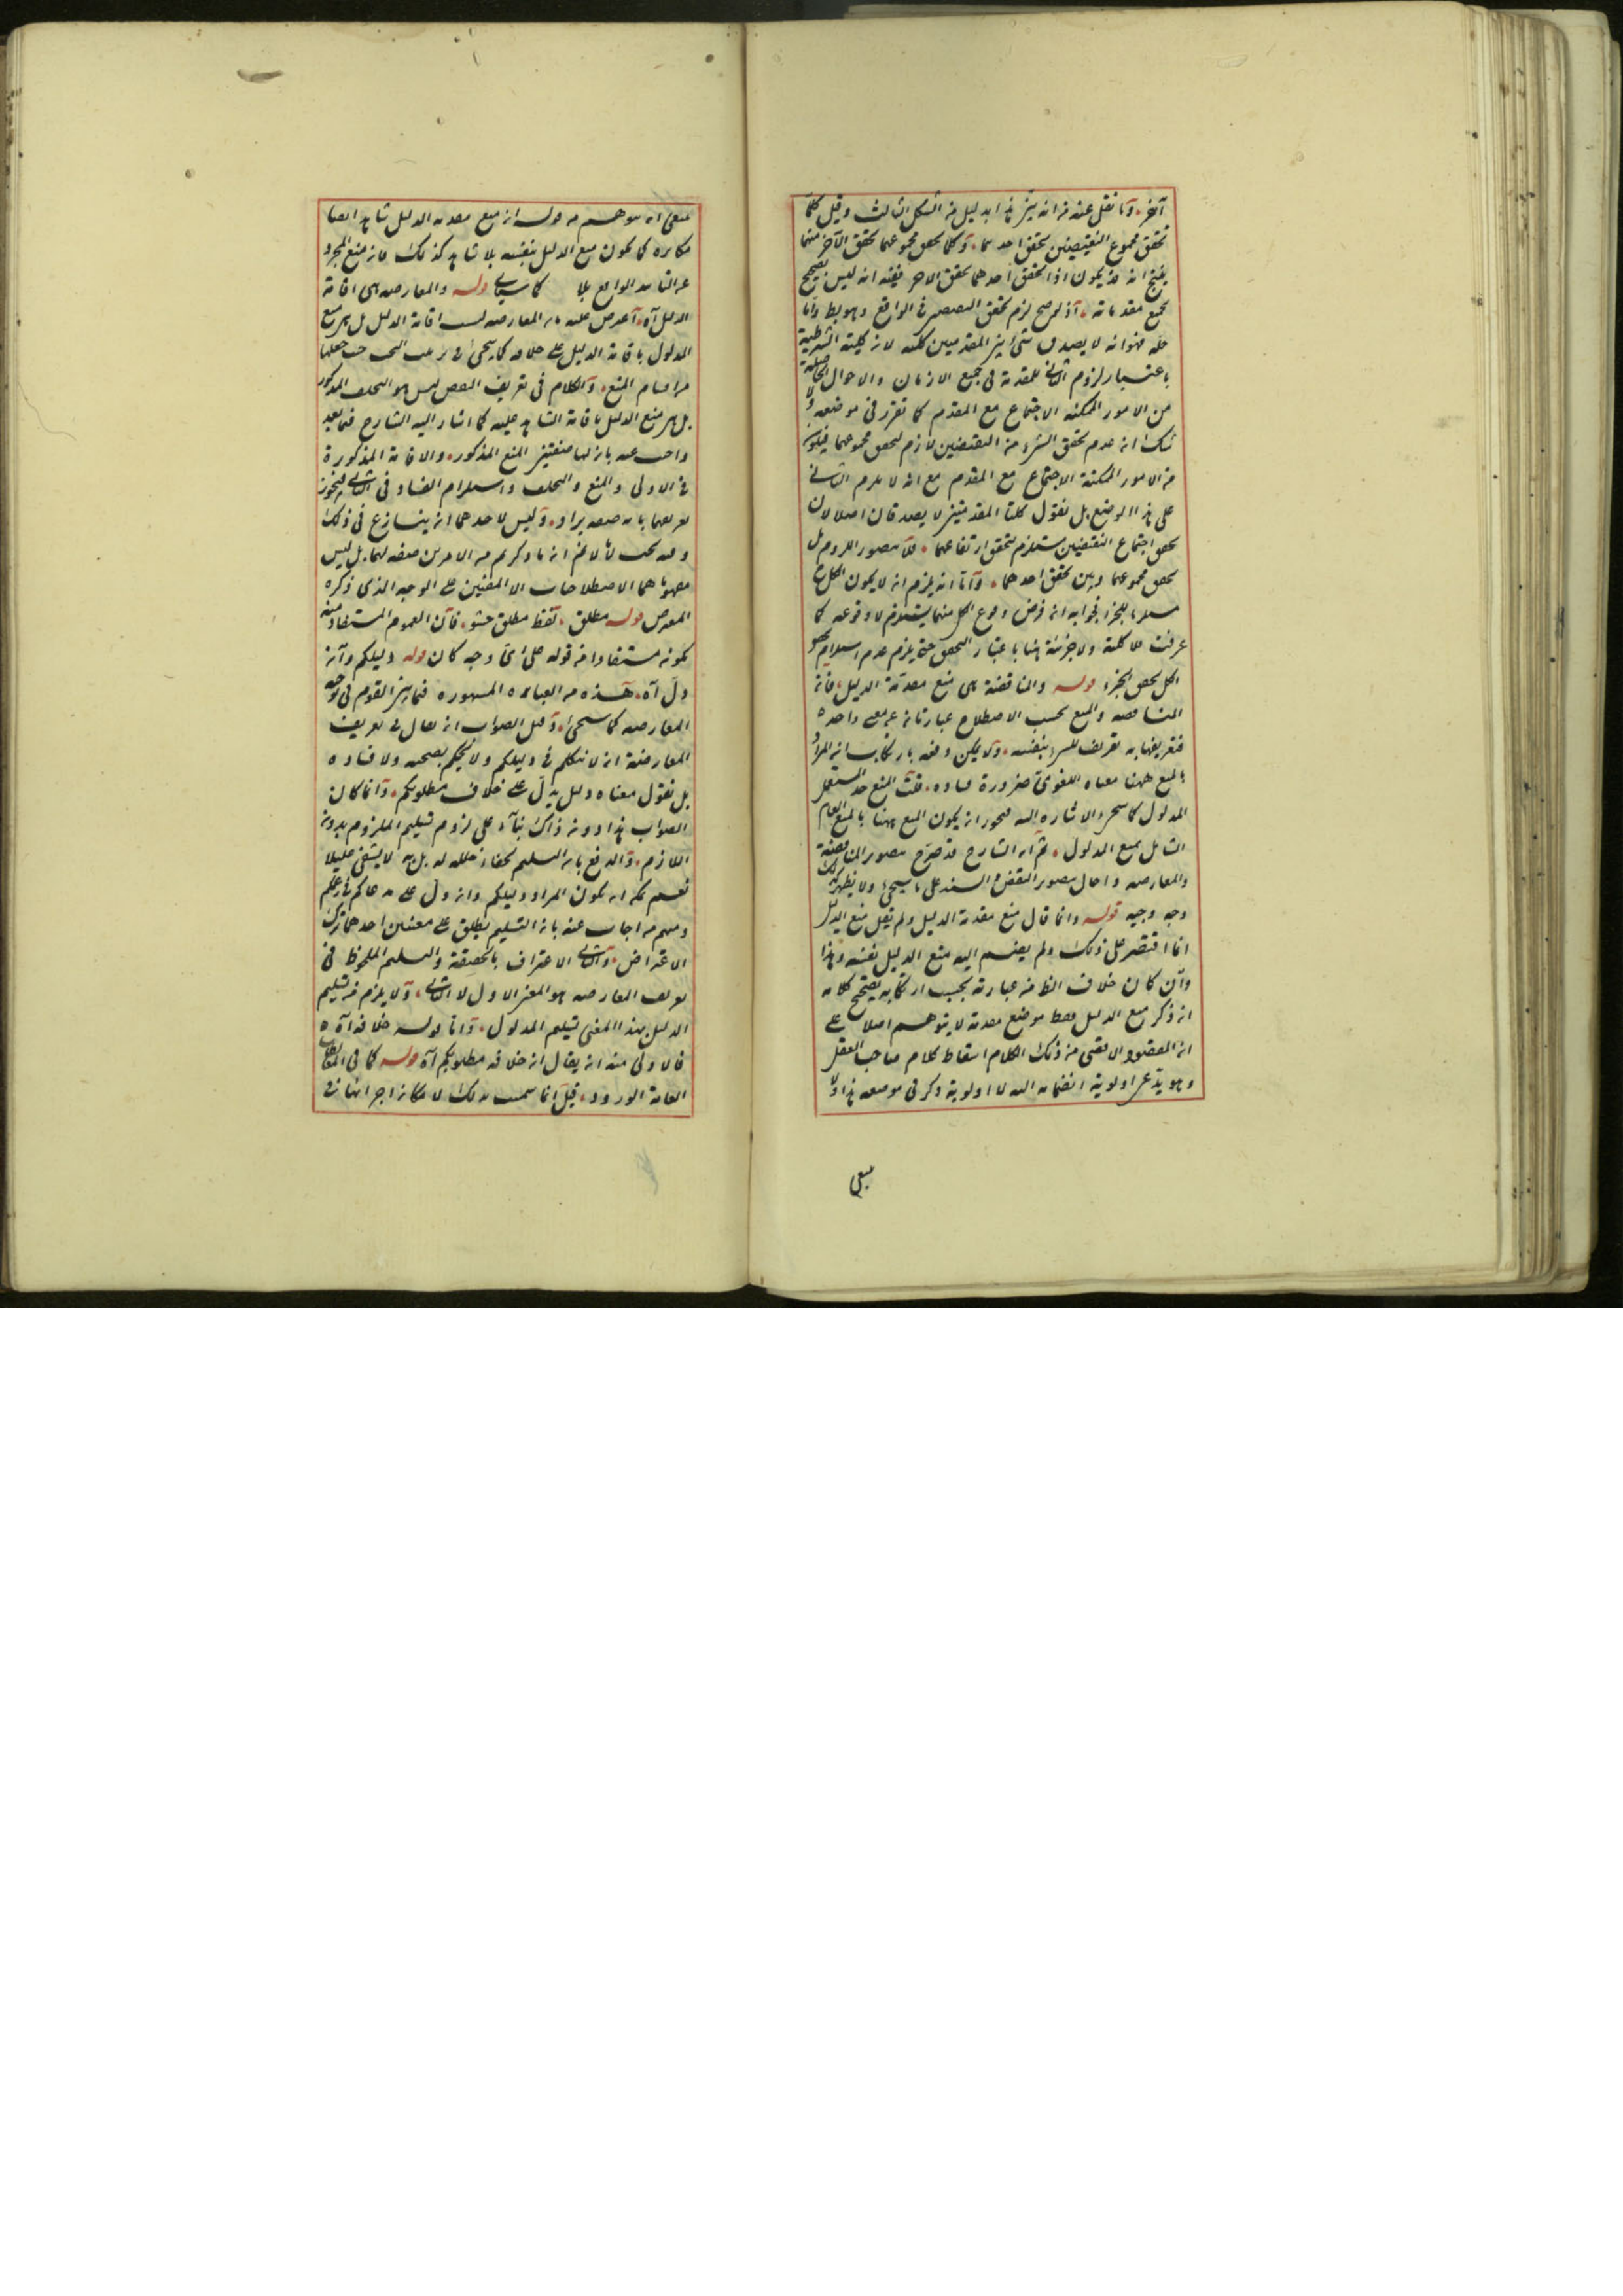 آخر وما نقل عنه من انه ينتج هذا بدليل من الشكل الثالث وقيل كلما
تحقق مجموع النقيضين تحقق احدهما وكلما تحقق مجموعهما تحقق الآخر منهما
ينتج انه قد يكون اذا تحقق احدهما تحقق الاخر ففيه انه ليس بصحيح
بجميع مقدماته اذ لو صح لزم تحقق النقيضين في الواقع وهو بط واما
حله فهو انه لا يصدق شئ من المقدمتين كلية لان كلية الشرطية
باعتبار لزوم التالي للمقدم في جميع الازمان والاحوال الحاصلة
من الامور الممكنة الاجتماع مع المقدم كما تقرر في موضعه ولا
شك ان عدم تحقق الشئ من النقيضين لازم لتحقق مجموعهما فيكون
من الامور الممكنة الاجتماع مع المقدم مع انه لا يلزم التالي
على هذا الوضع بل نقول كلتا المقدمتين لا يصدقان اصلا لان
تحقق اجتماع النقيضين مستلزم لتحقق ارتفاعهما فلا يتصور اللزوم بين
تحقق مجموعهما وبين تحقق احدهما واما انه يلزم ان لا يكون الكل
مستلزما للجزء فجوابه ان فرض وقوع الكل منهما يستلزم لا وقوعه كما
عرفت فلا كلية ولا جزئية هنا باعتبار التحقق حتى يلزم عدم استلزام تحقق
الكل تحقق الجزء قوله والمناقضة هي منع مقدمة الدليل فان
المناقضة والمنع بحسب الاصطلاح عبارتان عن معنى واحد
فتعريفها به تعريف للشئ بنفسه ولا يمكن دفعه بارتكاب ان المراد
بالمنع ههنا معناه اللغوي ضرورة فساده قلت المنع قد يستعمل
المدلول كما سيجئ الاشارة اليه فيجوز ان يكون المنع ههنا بالمنع العام
الشامل بمنع المدلول ثم ان الشارح قد صرح بتصوير المناقضة
والمعارضة واحال تصوير النقض والسند على ما سيجئ ولا يظهر لذلك
وجه وجيه قوله وانما قال منع مقدمة الدليل ولم يقل منع الدليل
انما اقتصر على ذلك ولم يضم اليه منع الدليل نفسه وهذا
وان كان خلاف الظ من عبارته يجب ارتكابه لتصحيح كلامه
ان ذكر منع الدليل فقط موضع مقدمة لا يتوهم اصلا على
ان المقصود الاقصى من ذلك الكلام اسقاط كلام صاحب العقل
وهو يدعى اولوية انضمامه اليه لا اولوية ذكر في موضعه هذا ولا
ينبغي
ينبغي ان يتوهم من قوله ان منع مقدمة الدليل شاهد ايضا
مكابرة كما يكون منع الدليل بنفسه بلا شاهد كذلك فان منع المجرد
عن الشاهد الواقع كما سيأتي قوله والمعارضة هي اقامة
الدليل آه اعترض عليه بان المعارضة ليست اقامة الدليل بل هي منع
المدلول باقامة الدليل على خلافه كما سيجئ حيث جعلها
من اقسام المنع والكلام في تعريف النقض ليس هو التخلف المذكور
بل هي منع الدليل باقامة الشاهد عليه كما اشار اليه الشارح فيما بعد
واجيب عنه بانه لها صفتين المنع المذكور والاقامة المذكورة
في الاولى والمنع والتخلف واستلزام الفساد في الثاني فيجوز
تعريفهما باية صفة يراد وليس لاحد هما ان ينازع في ذلك
وفيه بحث لانا لا نم ان ما ذكرتم من الامرين صفة لهما بل ليس
مفهوماهما الاصطلاحيان الا المعنيين على الوجه الذي ذكره
المعترض قوله مطلق لفظ مطلق حشو فان العموم المستفاد منه
كونه مستفادا من قوله على اي وجه كان قوله دليلكم وان
دل آه هذه من العبارة المشهورة فيما بين القوم في توجيه
المعارضة كما سيجئ وقيل الصواب ان يقال في تعريف
المعارضة ان لا نتكلم في دليلكم ولا نحكم بصحته ولا فساده
بل نقول معناه دليل يدل على خلاف مطلوبكم وانما كان
الصواب هذا دون ذاك بناء على لزوم تسليم الملزوم بدون
اللازم والدفع بان التسليم بل هو لا يشفي عليلا
نعم يمكن ان يكون المراد دليلكم وان دل على مدعاكم في زعمكم
ومنهم من اجاب عنه بان التسليم يطلق على معنيين احدهما ترك
الاعتراض والثاني الاعتراف بالحقيقة والتسليم الملحوظ في
تعريف المعارضة هو المعنى الاول لا الثاني ولا يلزم من تسليم
الدليل بهذا المعنى تسليم المدلول واما قوله خلافه آه
فالاولى منه ان يقال ان خلافه مطلوبكم آه قوله كما في المغالطات
العامة الورود قيل انما سميت بذلك لامكان اجرائها في